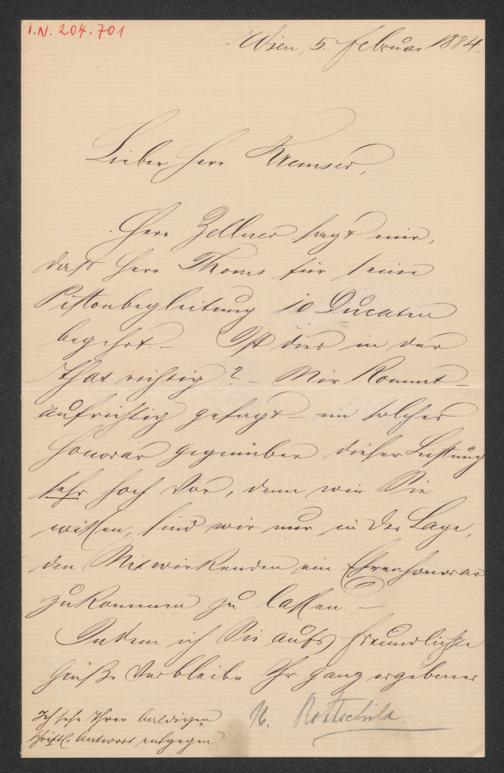 I.N. 204.701
Wien, 5. Februar 1884.
Lieber Herr Kremser,
Herr Zellner sagt mir,
daß Herr Thoms für seine
Pistonbegleitung 10 Ducaten
begehrt. – Ist dies in der
That richtig? – Mir kommt –
aufrichtig gesagt – ein solches
Honorar gegenüber dieser Leistung
sehr hoch vor, denn wie Sie
wissen, sind wir nur in der Lage,
den Mitwirkenden ein Ehrenhonorar
zukommen zu lassen. –
Indem ich Sie aufs freundlichste
grüße verbleibe Ihr ganz ergebener
Ich sehe Ihrer baldigen
schriftl. Antwort entgegen
Rothschild